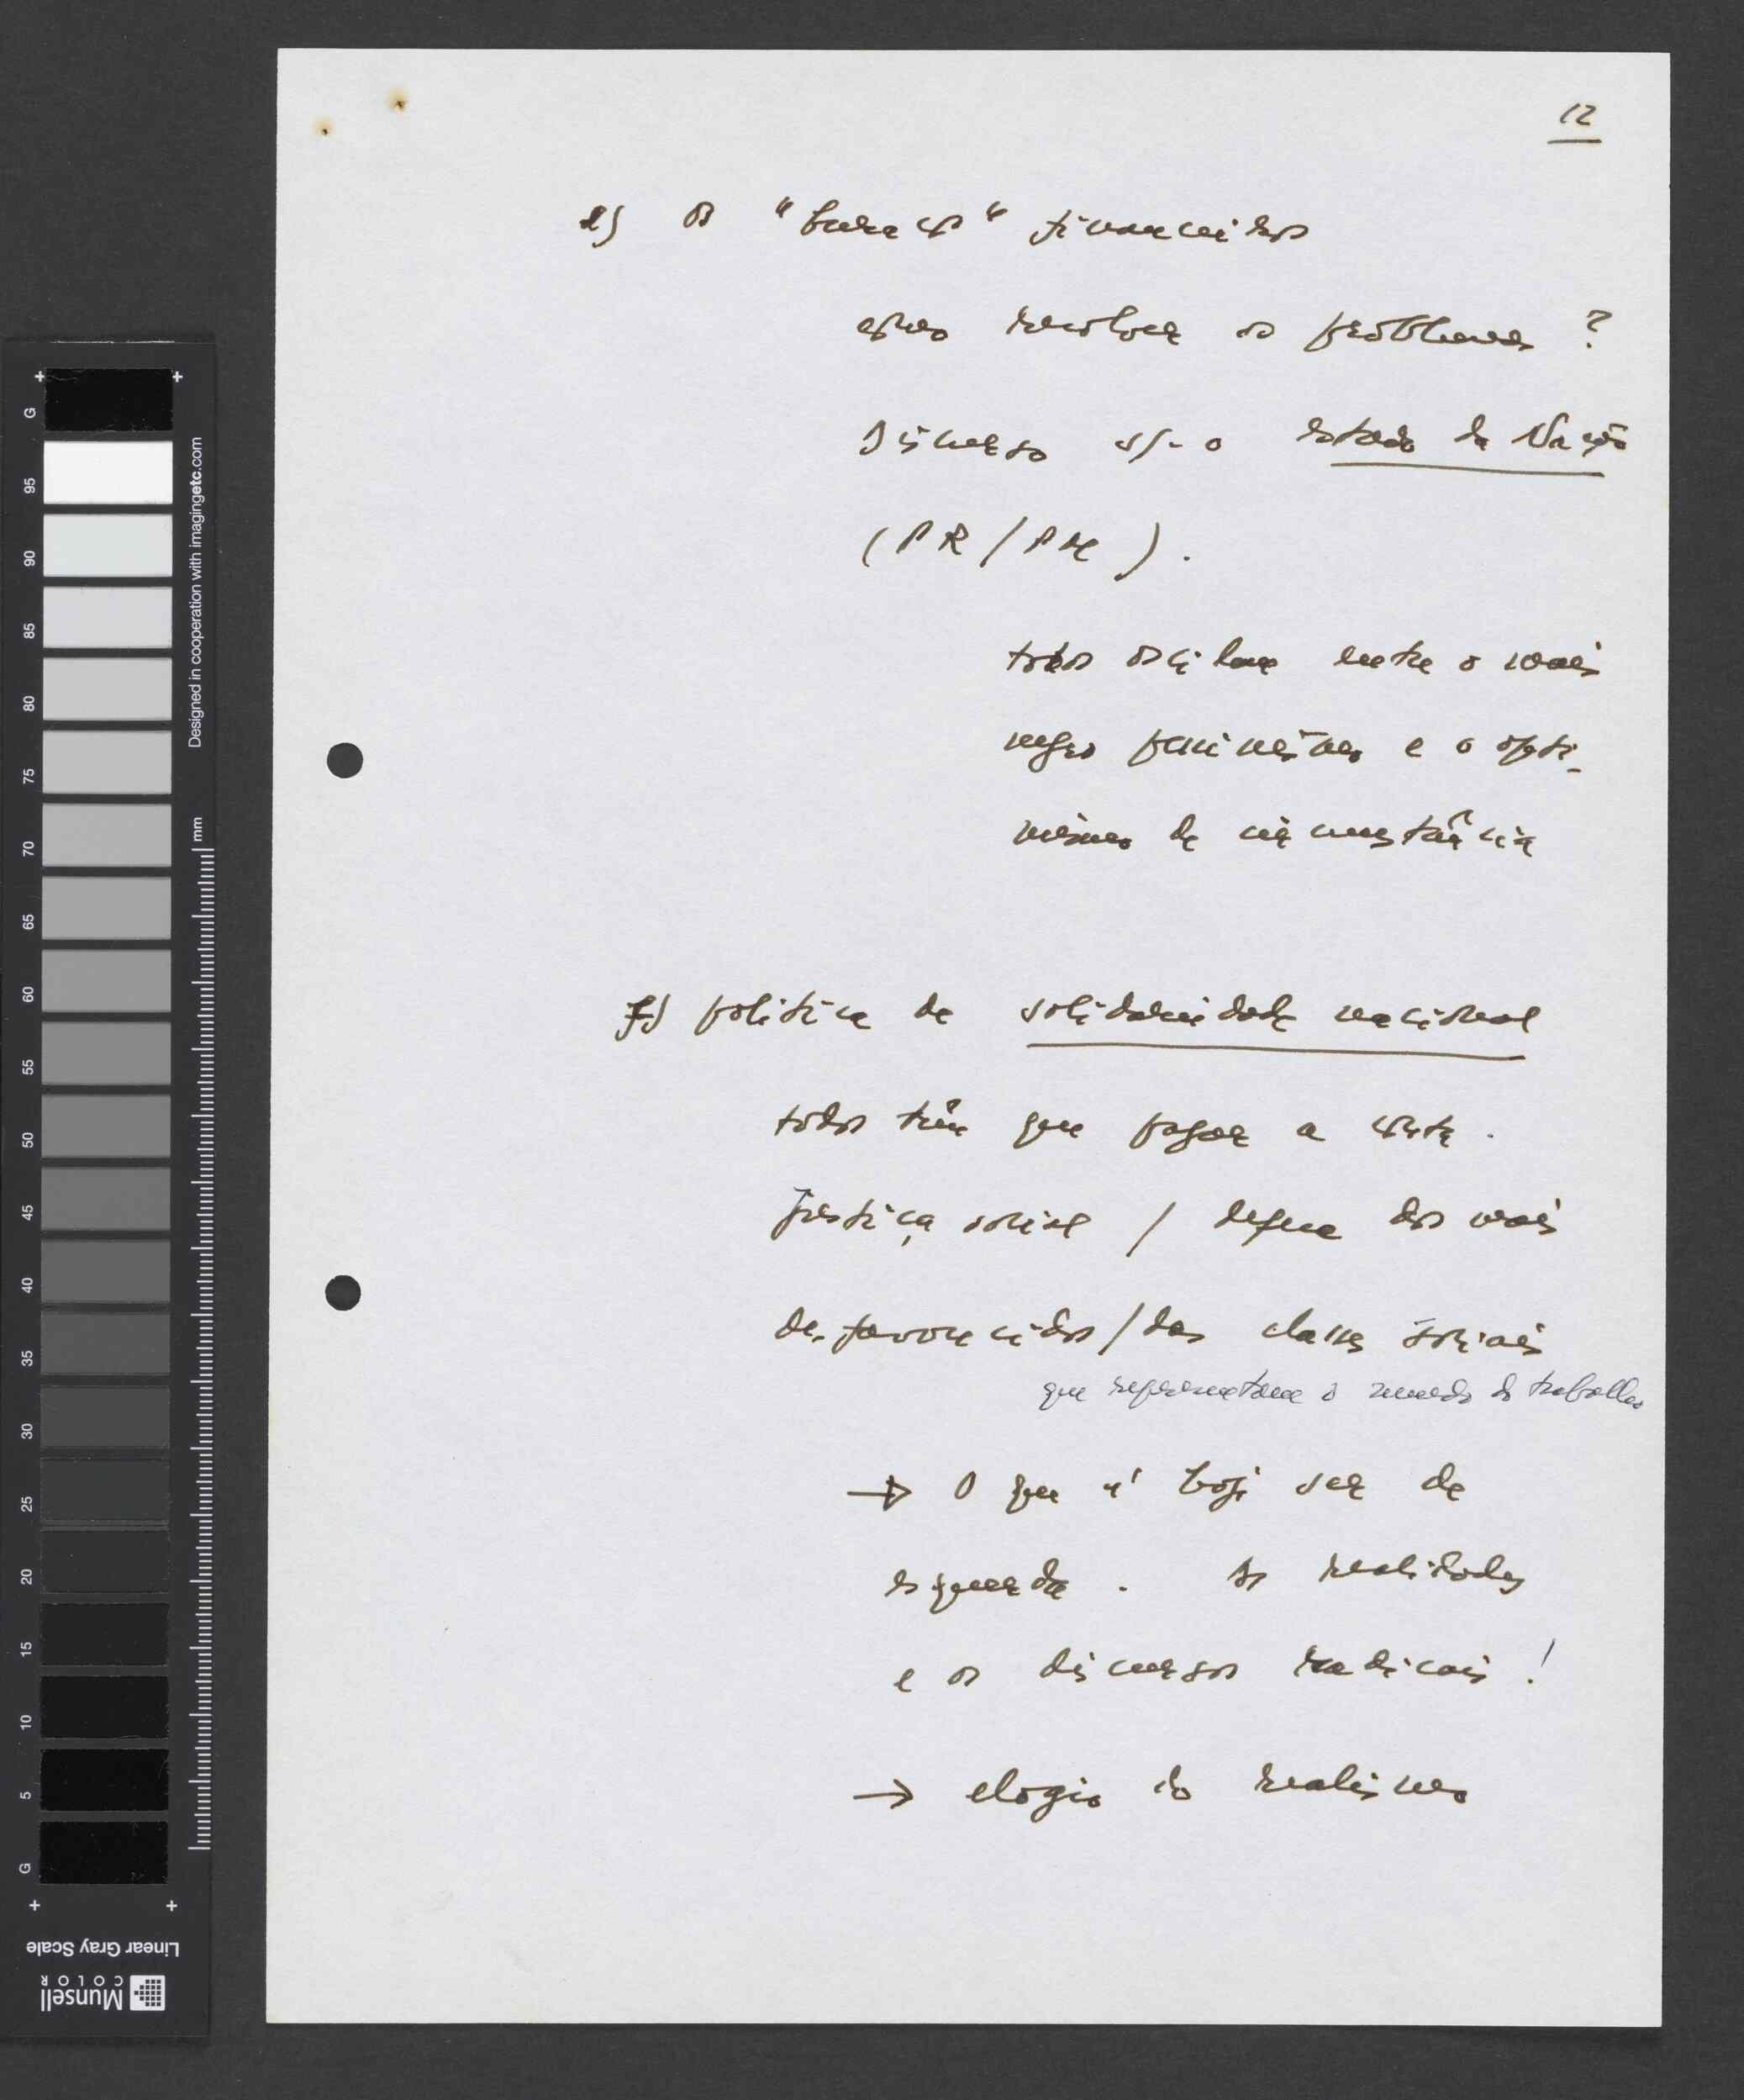 12
e) os "buracos" financeiros
como resolver os problemas ?
Discurso s/- o estado da Nação
(PR / PM ) .
todos oscilam entre o mais
negro pessimismo e o opti-
mismo de circunstância
f) politica de solidariedade nacional
todos têm que pagar a crise .
justiça social / defesa dos mais
desfavorecidos / das classes sociais
que representam o mundo do trabalho
→ O que é hoje ser de
esquerda . As realidades
e os discursos radicais !
→ elogio do realismo
G
95
90
85
80
75
70
65
60
55
50
45
40
35
30
25
20
15
10
5
G
mm
Designed in cooperation with imagingetc.com
Linear Gray Scale
Munsell
COLOR